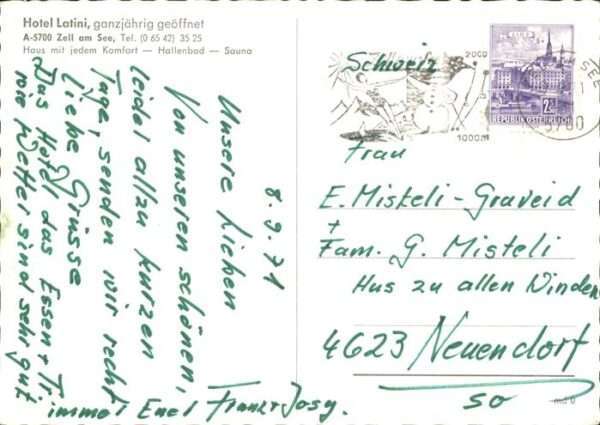 Hotel Latini, ganzjährig geöffnet
A-5700 Zell am See, Tel. (0 65 42) 35 25
Haus mit jedem Komfort — Hallenbad — Sauna
8.9.71
Unsere Lieben
Von unseren schönen,
leider allzu kurzen
Tage, senden wir recht
liebe Grüsse
Das Hotel das Essen +
wie Wetter sind sehr gut
immel Enel Franz + Josy.
2000
1000m
LINZ
2
REPUBLIK ÖSTERREICH
SEE
5700
Schweiz
Frau
E. Misteli-Graveid
+
Fam. G. Misteli
Hus zu allen Winden
4623 Neuendorf
SO